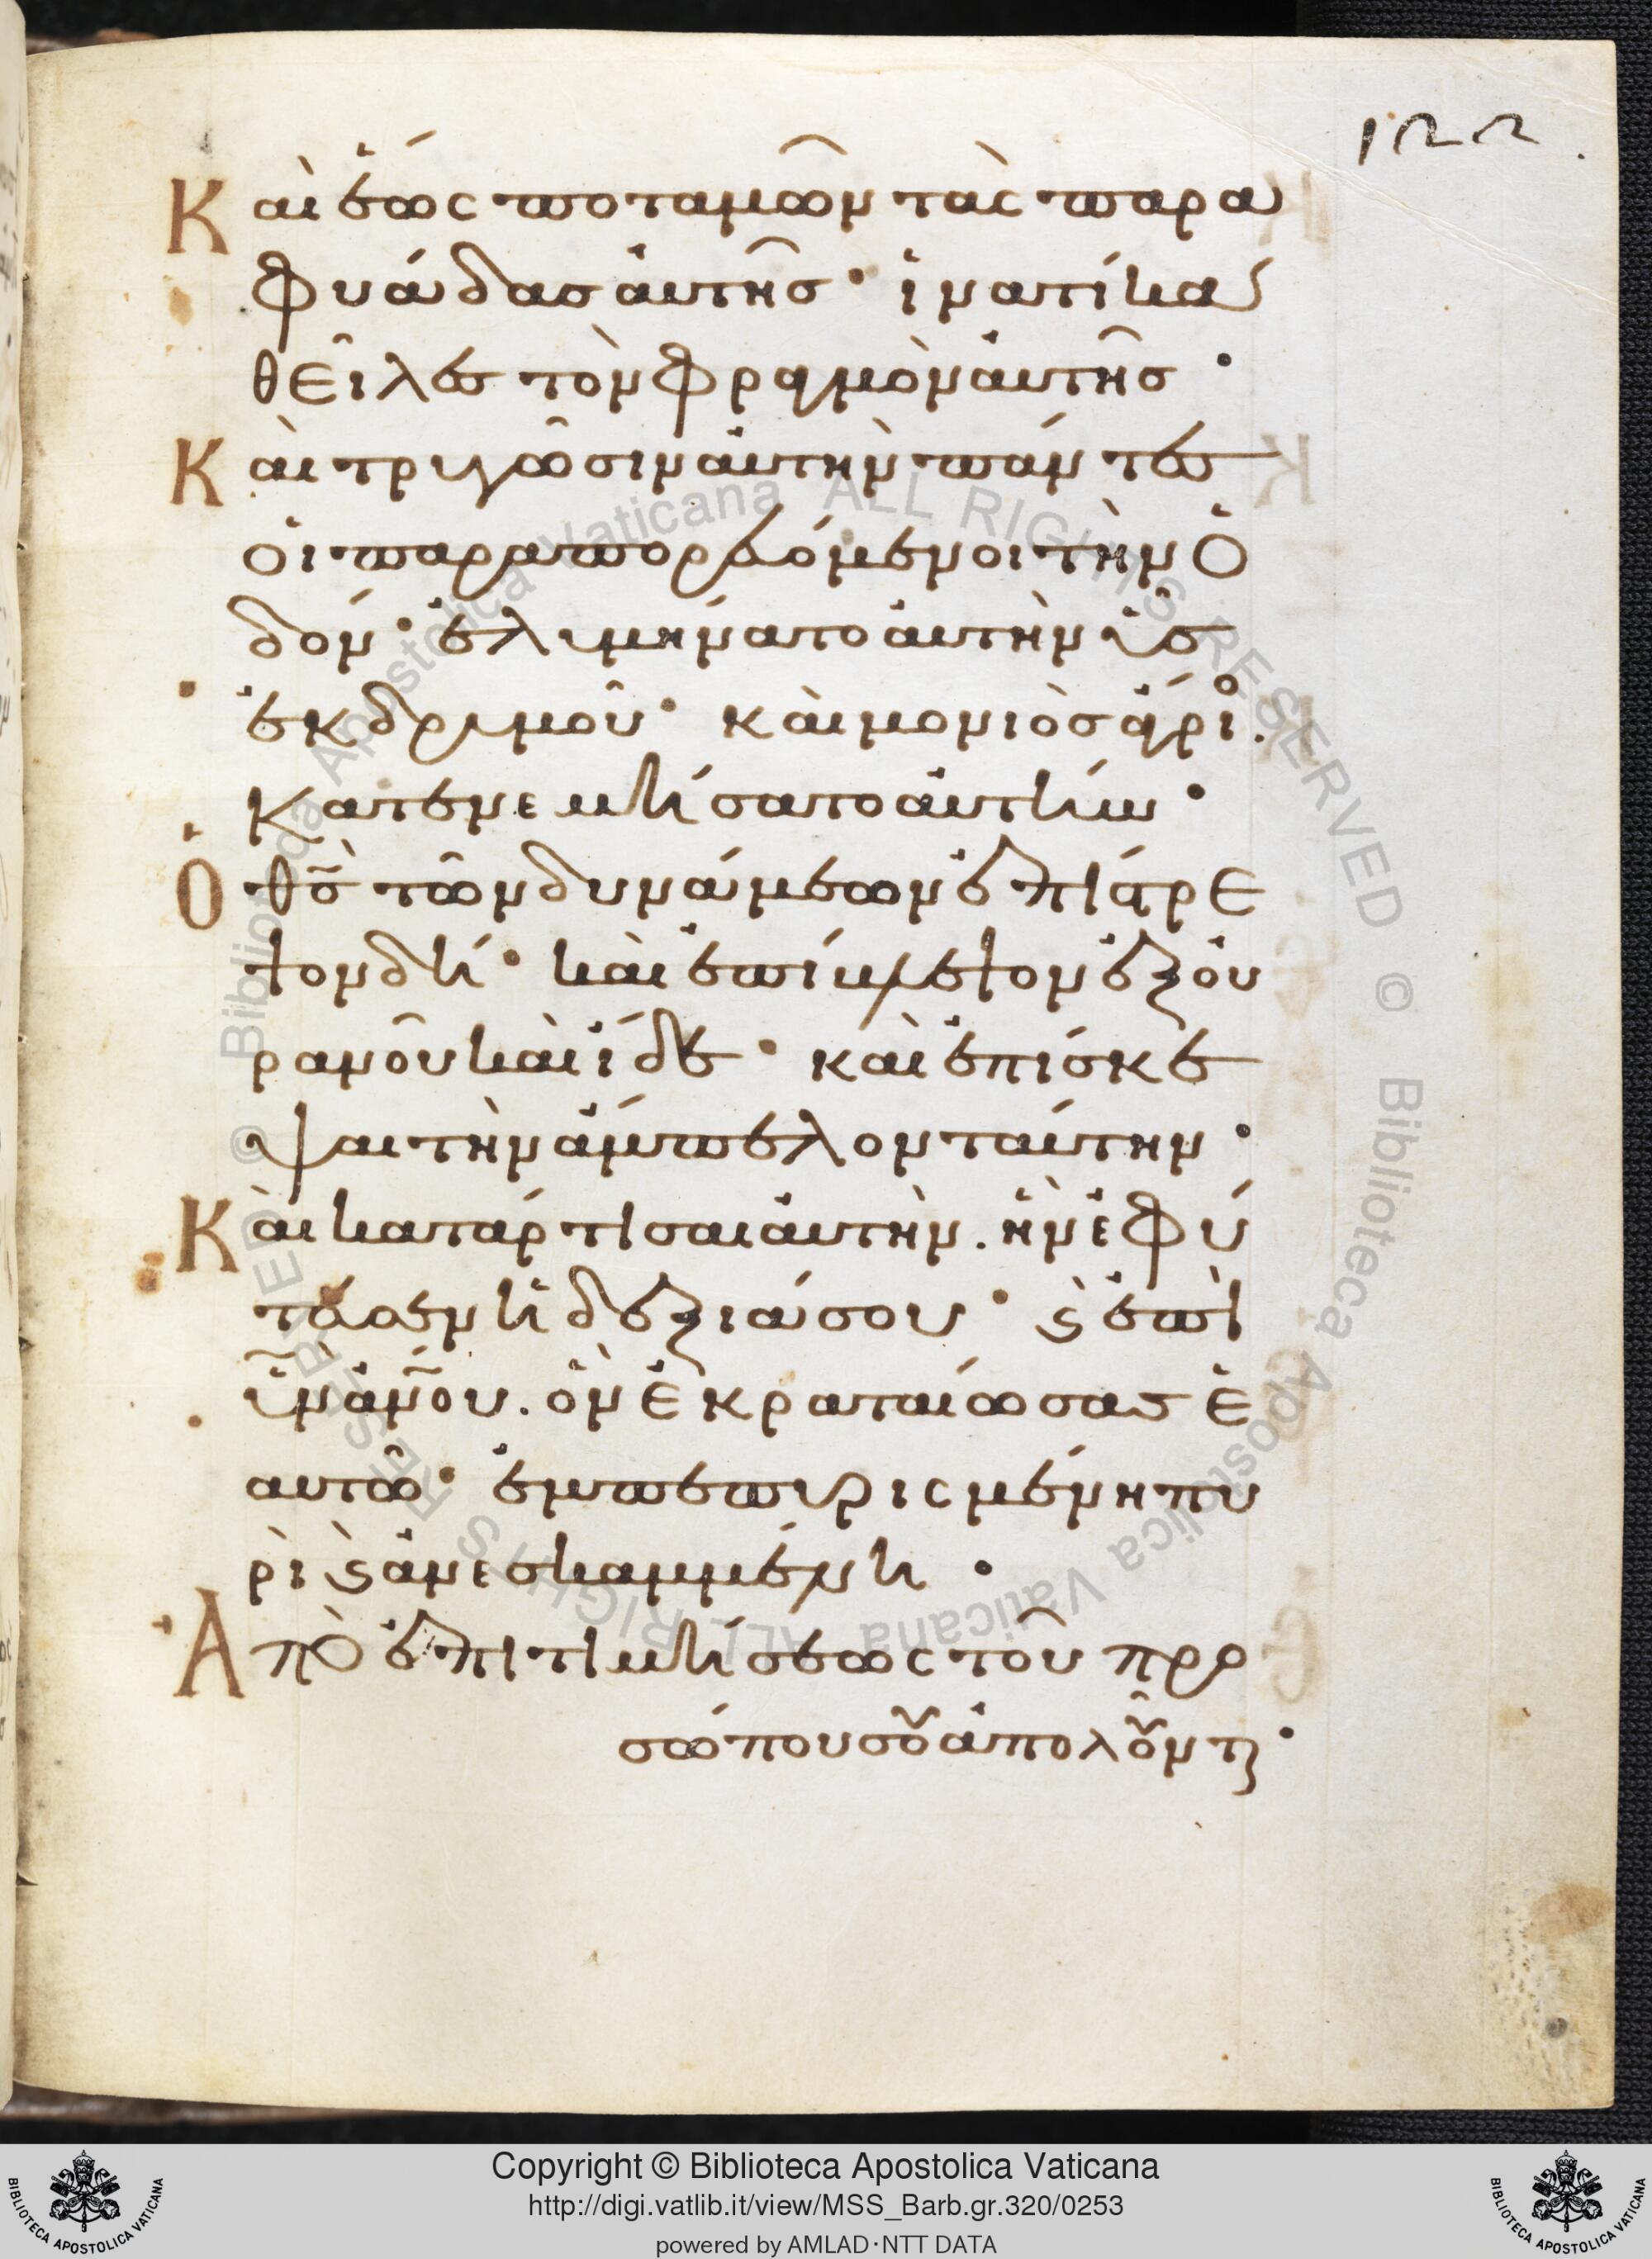 122.
Καὶ ἕως ποταμῶν τὰς παρα
φυάδασ αὐτῆσ· ἱνατί κα
θεῖλεσ τὸν φραγμὸν αὐτῆσ·
Καὶ τρυγῶσιν αὐτὴν πάντεσ
οἱ παραπορευόμενοι τὴν ὁ
δόν· ἐλυμήνατο αὐτὴν ὗσ
ἐκ δρυμοῦ· καὶ μονιὸσ ἄγριο.
κατενεμήσατο αὐτήν·
Ὁ θσ̃ τῶν δυνάμεων ἐπίστρε
ψον δή· καὶ ἐπίβλεψον ἐξ οὐ
ρανοῦ καὶ ἴδε· καὶ ἐπίσκε
ψαι τὴν ἄμπελον ταύτην·
Καὶ κατάρτισαι αὐτὴν. ἣν ἐφύ
τευσεν ἡ δεξιά σου· ϛ ἐπὶ
υν̃ ανου. ὃν ἐκραταίωσασ ἑ
αυτῶ· ἐμπεπυρισμένη πυ
ρὶ ϛ ἀνεσκαμμένη·
Ἀπὸ ἐπιτιμήσεως τοῦ προ
σώπου σου ἀπολοῦντ
Copyright © Biblioteca Apostolica Vaticana
http://digi.vatlib.it/view/MSS_Barb.gr.320/0253
powered by AMLAD·NTT DATA
BIBLIOTECA APOSTOLICA VATICANA
BIBLIOTECA APOSTOLICA VATICANA
© Biblioteca Apostolica Vaticana ALL RIGHTS RESERVED © Biblioteca Apostolica Vaticana ALL RIGHTS RESERVED